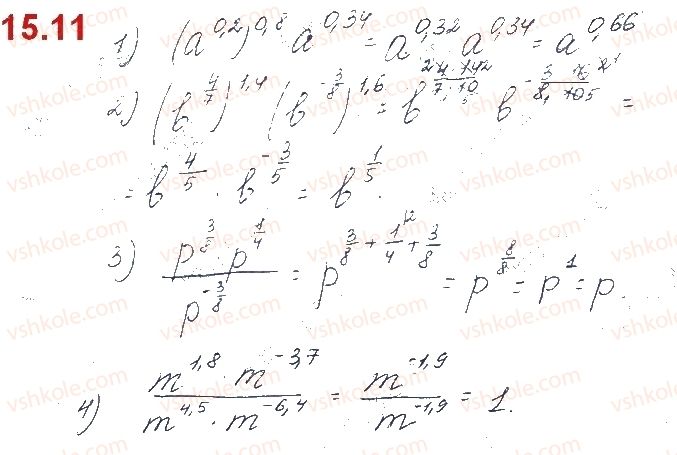 15.11
1) (a^{0,2})^{0,8} a^{0,34} = a^{0,32} a^{0,34} = a^{0,66}
2) (b^{4/7})^{1,4} (b^{-3/8})^{1,6} = b^{4·14/7·10} b^{-3/8, } =
= b^{4/5} · b^{-3/5} = b^{1/5}.
3) p^{3/8} p^{1/4} / p^{-3/8} = p^{3/8 + 1/4 + 3/8} = p^{8/8} = p^1 = p.
4) m^{1,8} · m^{-3,7} / m^{4,5} · m^{-6,4} = m^{-1,9} / m^{-1,9} = 1.
vshkole.com